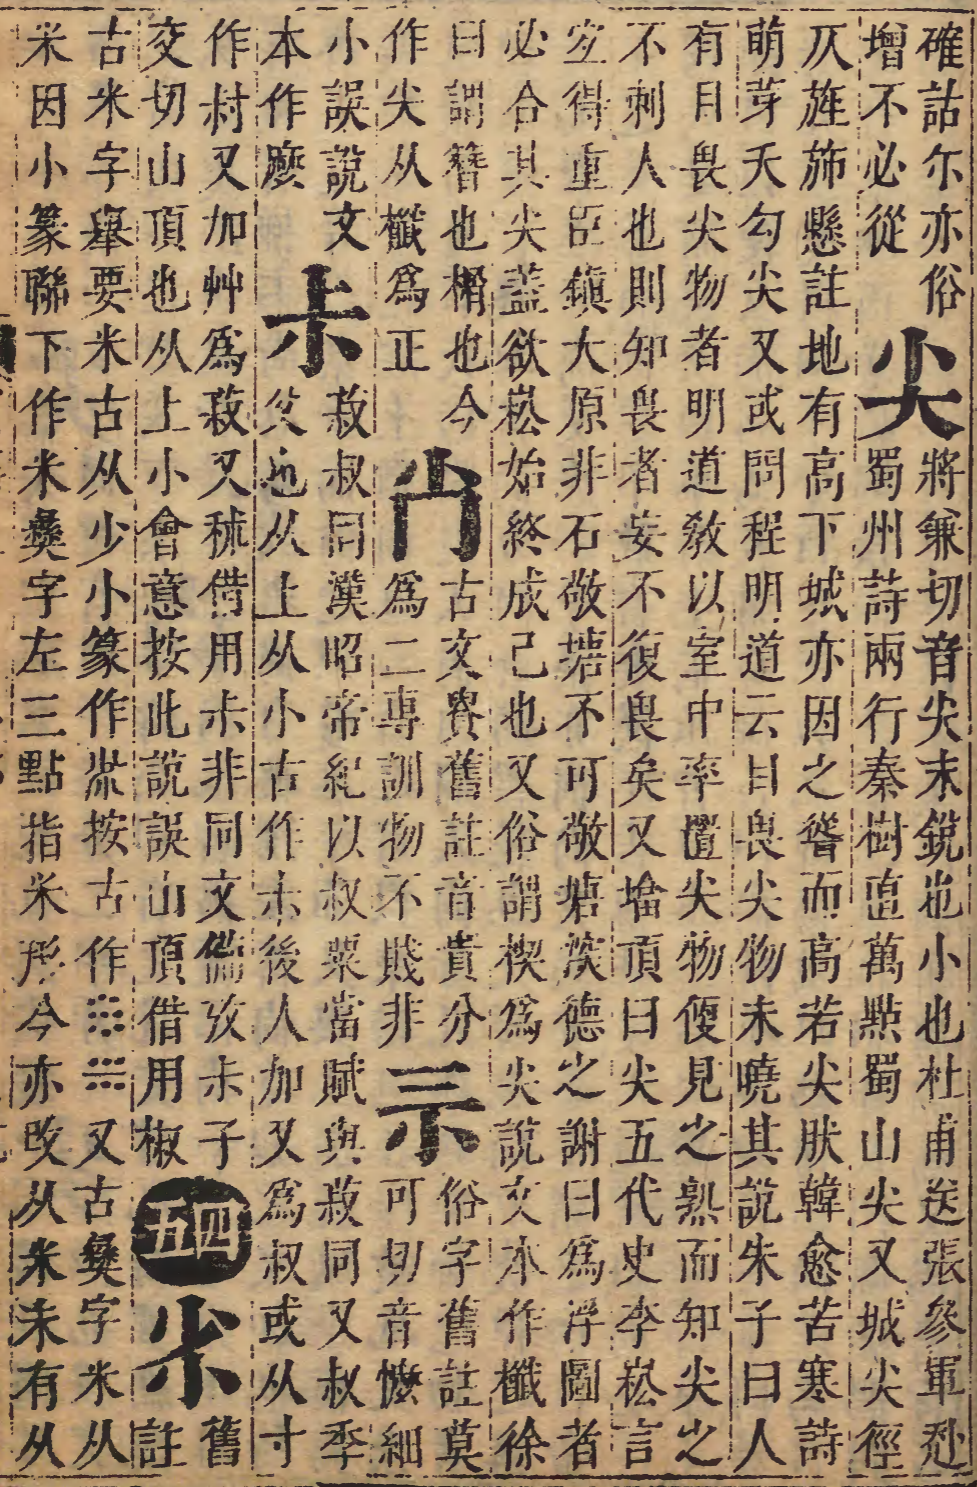 確詁尓亦俗
增不必從
尖
將兼切音尖末銳也小也杜甫送張參軍赴
蜀州詩兩行秦樹直萬點蜀山尖又城尖徑
仄旌斾懸註地有高下城亦因之彎而高若尖肰韓愈苦寒詩
萌芽夭勾尖又或問程明道云目畏尖物未曉其說朱子曰人
有目畏尖物者明道敎以室中率置尖物便見之熟而知尖之
不刺人也則知畏者妄不復畏矣又墖頂曰尖五代史李崧言
宜得重臣鎮大原非石敬塘不可敬塘深德之謝曰爲浮圖者
必合其尖蓋欲崧始終成己也又俗謂楔爲尖說文本作櫼徐
曰謂簪也櫡也今
作尖从櫼爲正
古文舊註音貴分
爲二專訓物不賤非
俗字舊註莫
可切音懡細
小誤說文
本作麼
尗
菽叔同漢昭帝紀以叔粟當賦與菽同又叔季
也从上从小古作尗後人加又爲叔或从寸
作村又加艸爲菽又秫借用尗非同文備攷尗子
交切山頂也从上小會意按此說誤山頂借用椒
四五
舊
註
古米字舉要米古从少小篆作按古作又古彝字米从
米因小篆聯下作米彝字左三點指米形今亦改从米未有从